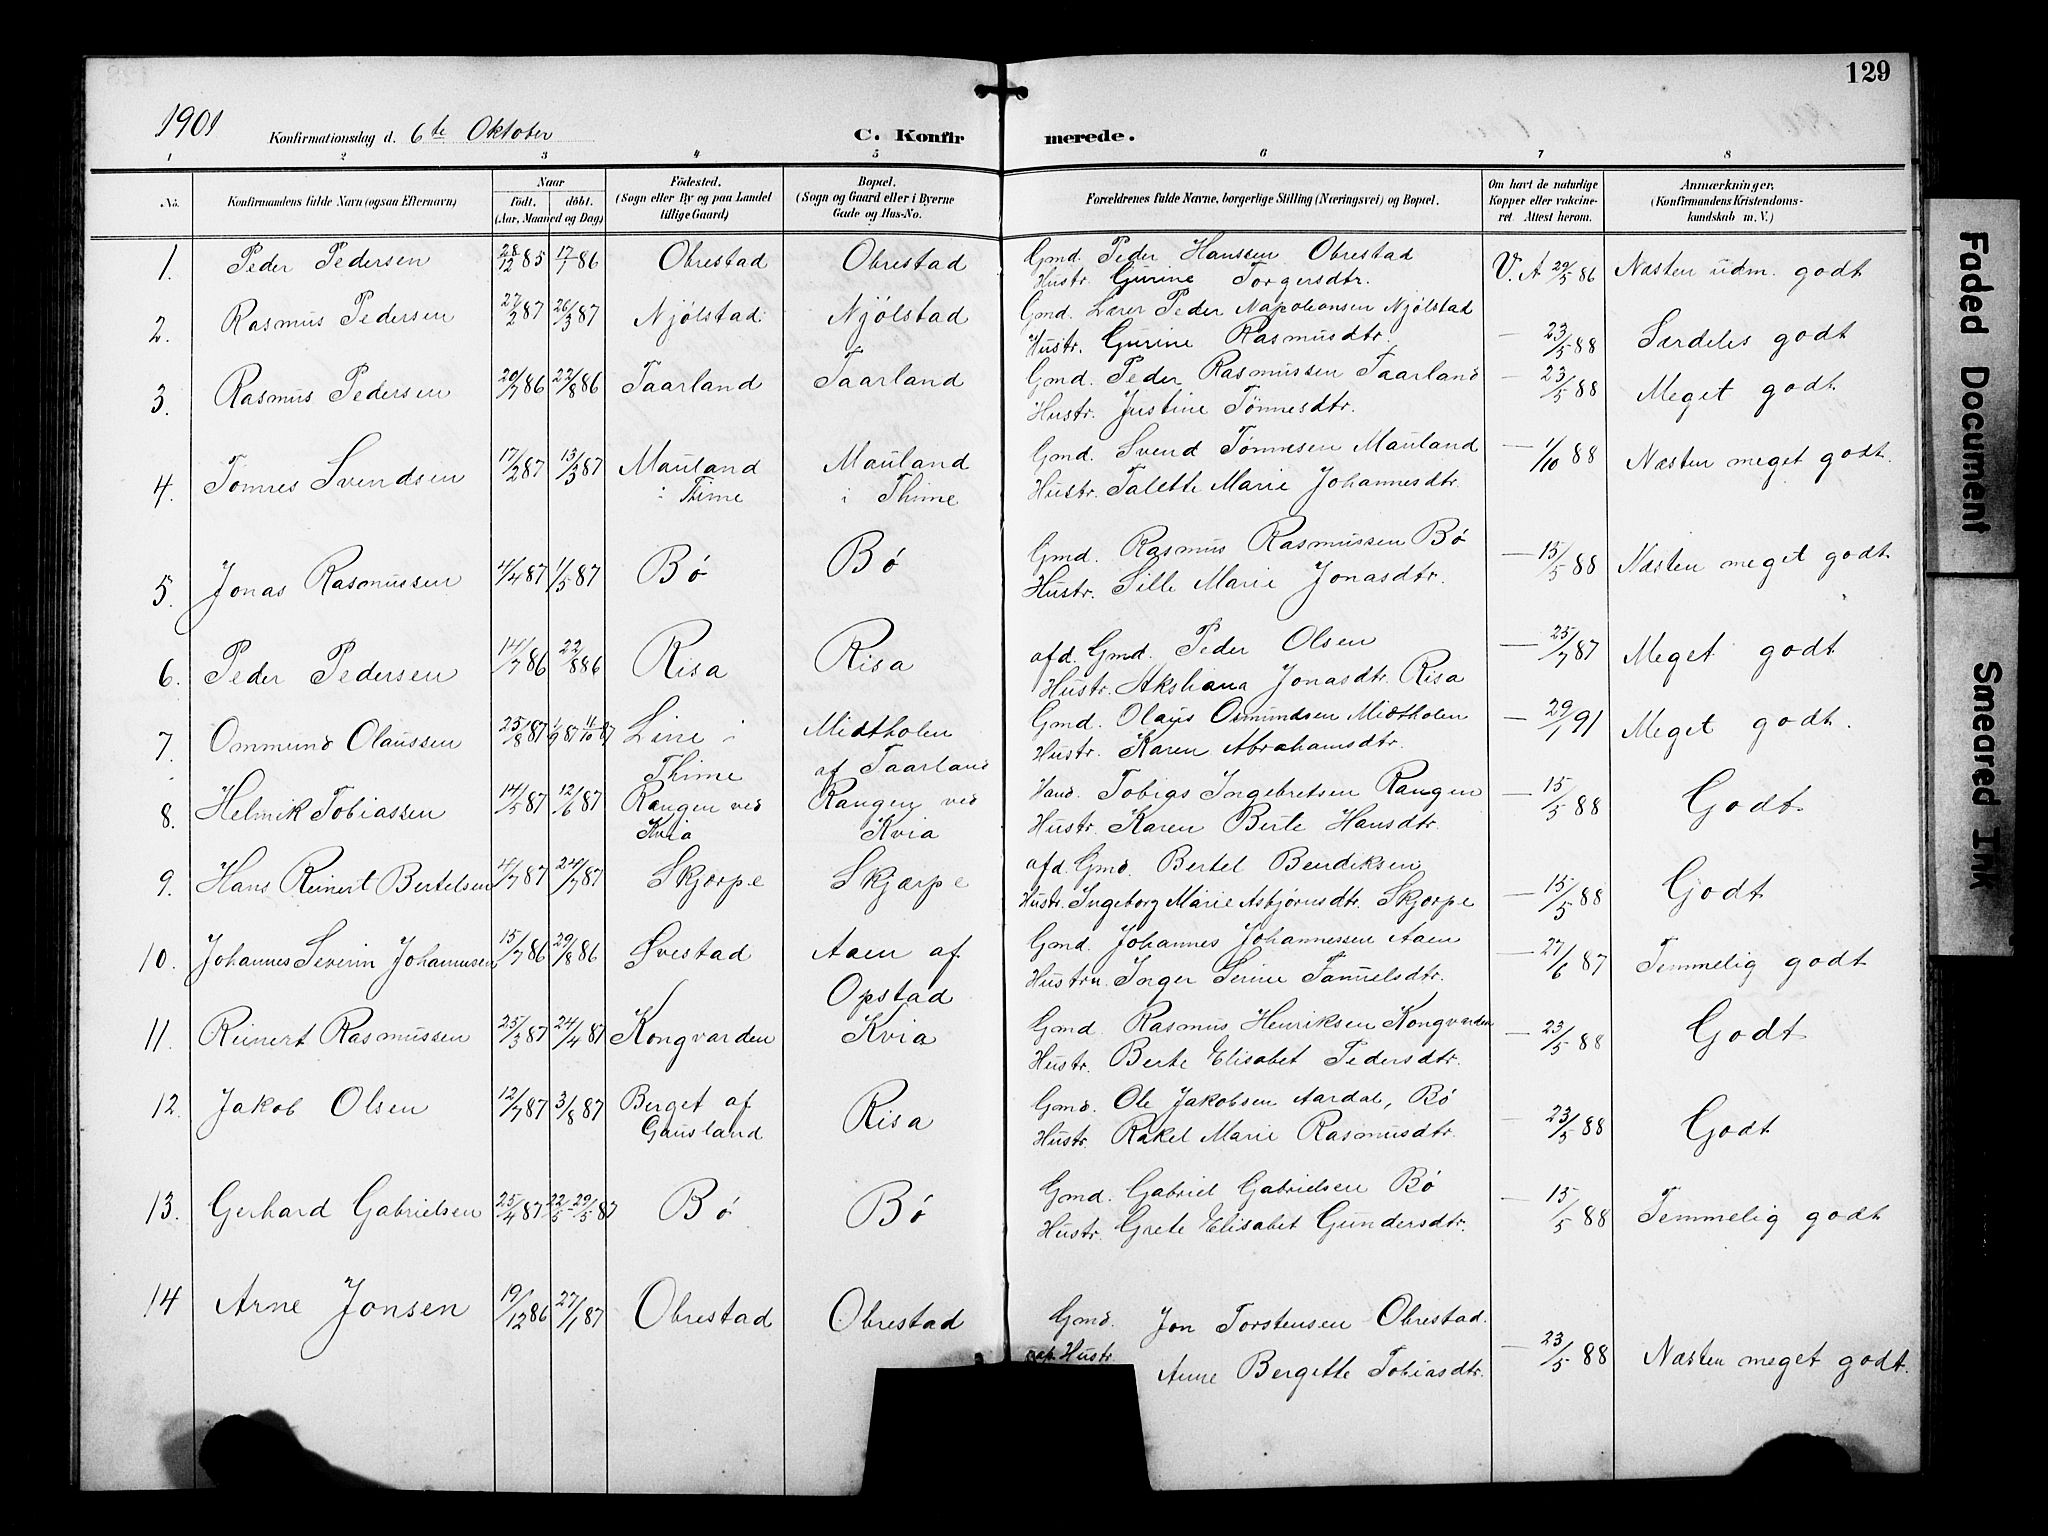 129
1901
Konfirmationsdag d. 6te Oktober
C. Konfirmerede.
1 2 3 4 5 6 7 8
No.
Konfirmandens fulde Navn (ogsaa Efternavn)
Naar
födt. döbt.
(Aar, Maaned og Dag)
Födested.
(Sogn eller By og paa Landet
tillige Gaard)
Bopæl.
(Sogn og Gaard eller i Byerne
Gade og Hus-No.
Forældrenes fulde Navne, borgerlige Stilling (Næringsvei) og Bopæl.
Om havt de naturlige
Kopper eller vakcine-
ret Attest herom.
Anmærkninger,
(Konfirmandens Kristendoms-
kundskab m. V.)
1. Peder Pedersen 28/12 85 17/1 86 Obrestad Obrestad Gmd. Peder Hanssen Obrestad V. A 20/5 86 Næsten udm. godt
Hustr. Gurine Torgersdtr.
2. Rasmus Pedersen 27/2 87 26/3 87 Njølstad Njølstad Gmd. Lærer Peder Napoleonsen Njølstad
Hustr. Gurine Rasmusdtr. — 23/5 88 Særdeles godt
3. Rasmus Pedersen 20/7 86 22/8 86 Taarland Taarland Gmd. Peder Rasmussen Taarland — 23/5 88 Meget godt
Hustr. Justine Tønnesdtr.
4. Tønnes Svendsen 17/2 87 13/3 87 Mauland Mauland Gmd. Svend Tønnesen Mauland — 1/10 88 Næsten meget godt.
i Time i Thime Hustr. Talette Marie Johannesdtr.
5. Jonas Rasmussen 4/4 87 1/5 87 Bø Bø Gmd. Rasmus Rasmussen Bø — 15/5 88 Næsten meget godt
Hustr. Sille Marie Jonasdtr.
6. Peder Pedersen 14/7 86 22/8 86 Risa Risa afd. Gmd. Peder Olsen — 25/7 87 Meget godt
Hustr. Jonasdtr. Risa
7. Ommund Olaussen 25/8 87 1/9 87 4/10 87 Line i Midtholen Gmd. Olaus Osmundsen Midtholen — 29/7 91 Meget godt.
Thime af Taarland Hustr. Karen Abrahamsdtr.
8. Helmik Tobiassen 14/5 87 12/6 87 Rangen ved Rangen ved Hand. Tobias Ingebretsen Rangen — 15/5 88 Godt
Kvia Kvia Hustr. Karen Berte Hansdtr.
9. Hans Reinert Bertelsen 4/7 87 24/7 87 Skjærpe Skjærpe afd. Gmd. Bertel Bendiksen
Hustr. Ingeborg Marie Asbjørnsdtr. Skjærpe — 15/5 88 Godt
10. Johannes Severin Johannesen 15/7 86 29/8 86 Svestad Aaen af Gmd. Johannes Johannessen Aaen — 27/6 87 Temmelig godt
Opstad Hustru Inger Serine Samuelsdtr.
11. Reinert Rasmussen 25/3 87 24/4 87 Kongvarden Kvia Gmd. Rasmus Henriksen Kongvarden — 23/5 88 Godt
Hustr. Berte Elisabet Pedersdtr.
12. Jakob Olsen 12/7 87 3/8 87 Berget af Risa Gmd. Ole Jakobsen Aardal, Bø — 23/5 88 Godt
Gausland Hustr. Rakel Marie Rasmusdtr.
13. Gerhard Gabrielsen 25/4 87 22/5 - 29/5 87 Bø Bø Gmd. Gabriel Gabrielsen Bø — 15/5 88 Temmelig godt
Hustr. Grete Elisabet Gundersdtr.
14 Arne Jonsen 19/12 86 27/1 87 Obrestad Obrestad Gmd. Jon Torstensen Obrestad. — 23/5 88 Næsten meget godt.
Hustr. Anne Bergette Tobiasdtr.
Faded Document
Smeared Ink